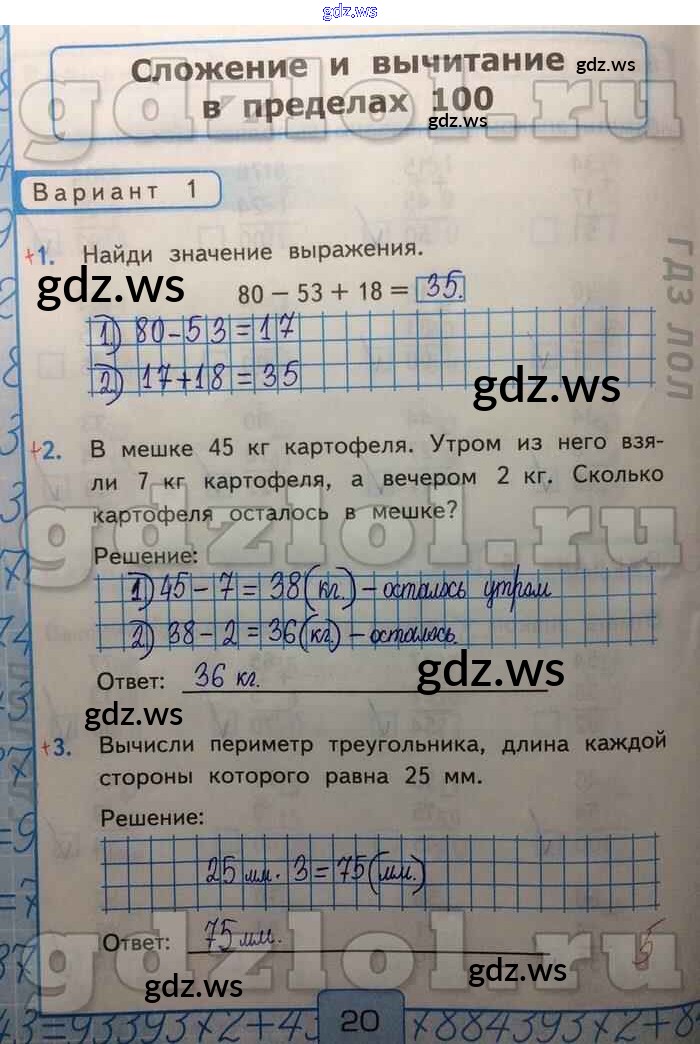 gdz.ws
Сложение и вычитание gdz.ws
в пределах 100
gdz.ws
gdzlol.ru
Вариант 1
+1. Найди значение выражения.
gdz.ws
80 − 53 + 18 = 35.
1) 80-53=17
2) 17+18=35
гдз лол
gdz.ws
+2. В мешке 45 кг картофеля. Утром из него взя-
ли 7 кг картофеля, а вечером 2 кг. Сколько
картофеля осталось в мешке?
gdzlol.ru
Решение:
1) 45-7=38(кг.)-осталось утром
2) 38-2=36(кг)-осталось.
Ответ: 36 кг.
gdz.ws
gdz.ws
+3. Вычисли периметр треугольника, длина каждой
стороны которого равна 25 мм.
Решение:
25 мм. · 3=75(мм.)
Ответ: 75 мм.
5
gdzlol.ru
gdz.ws
gdz.ws
43=93393×2+43 20 ×884393×2+8